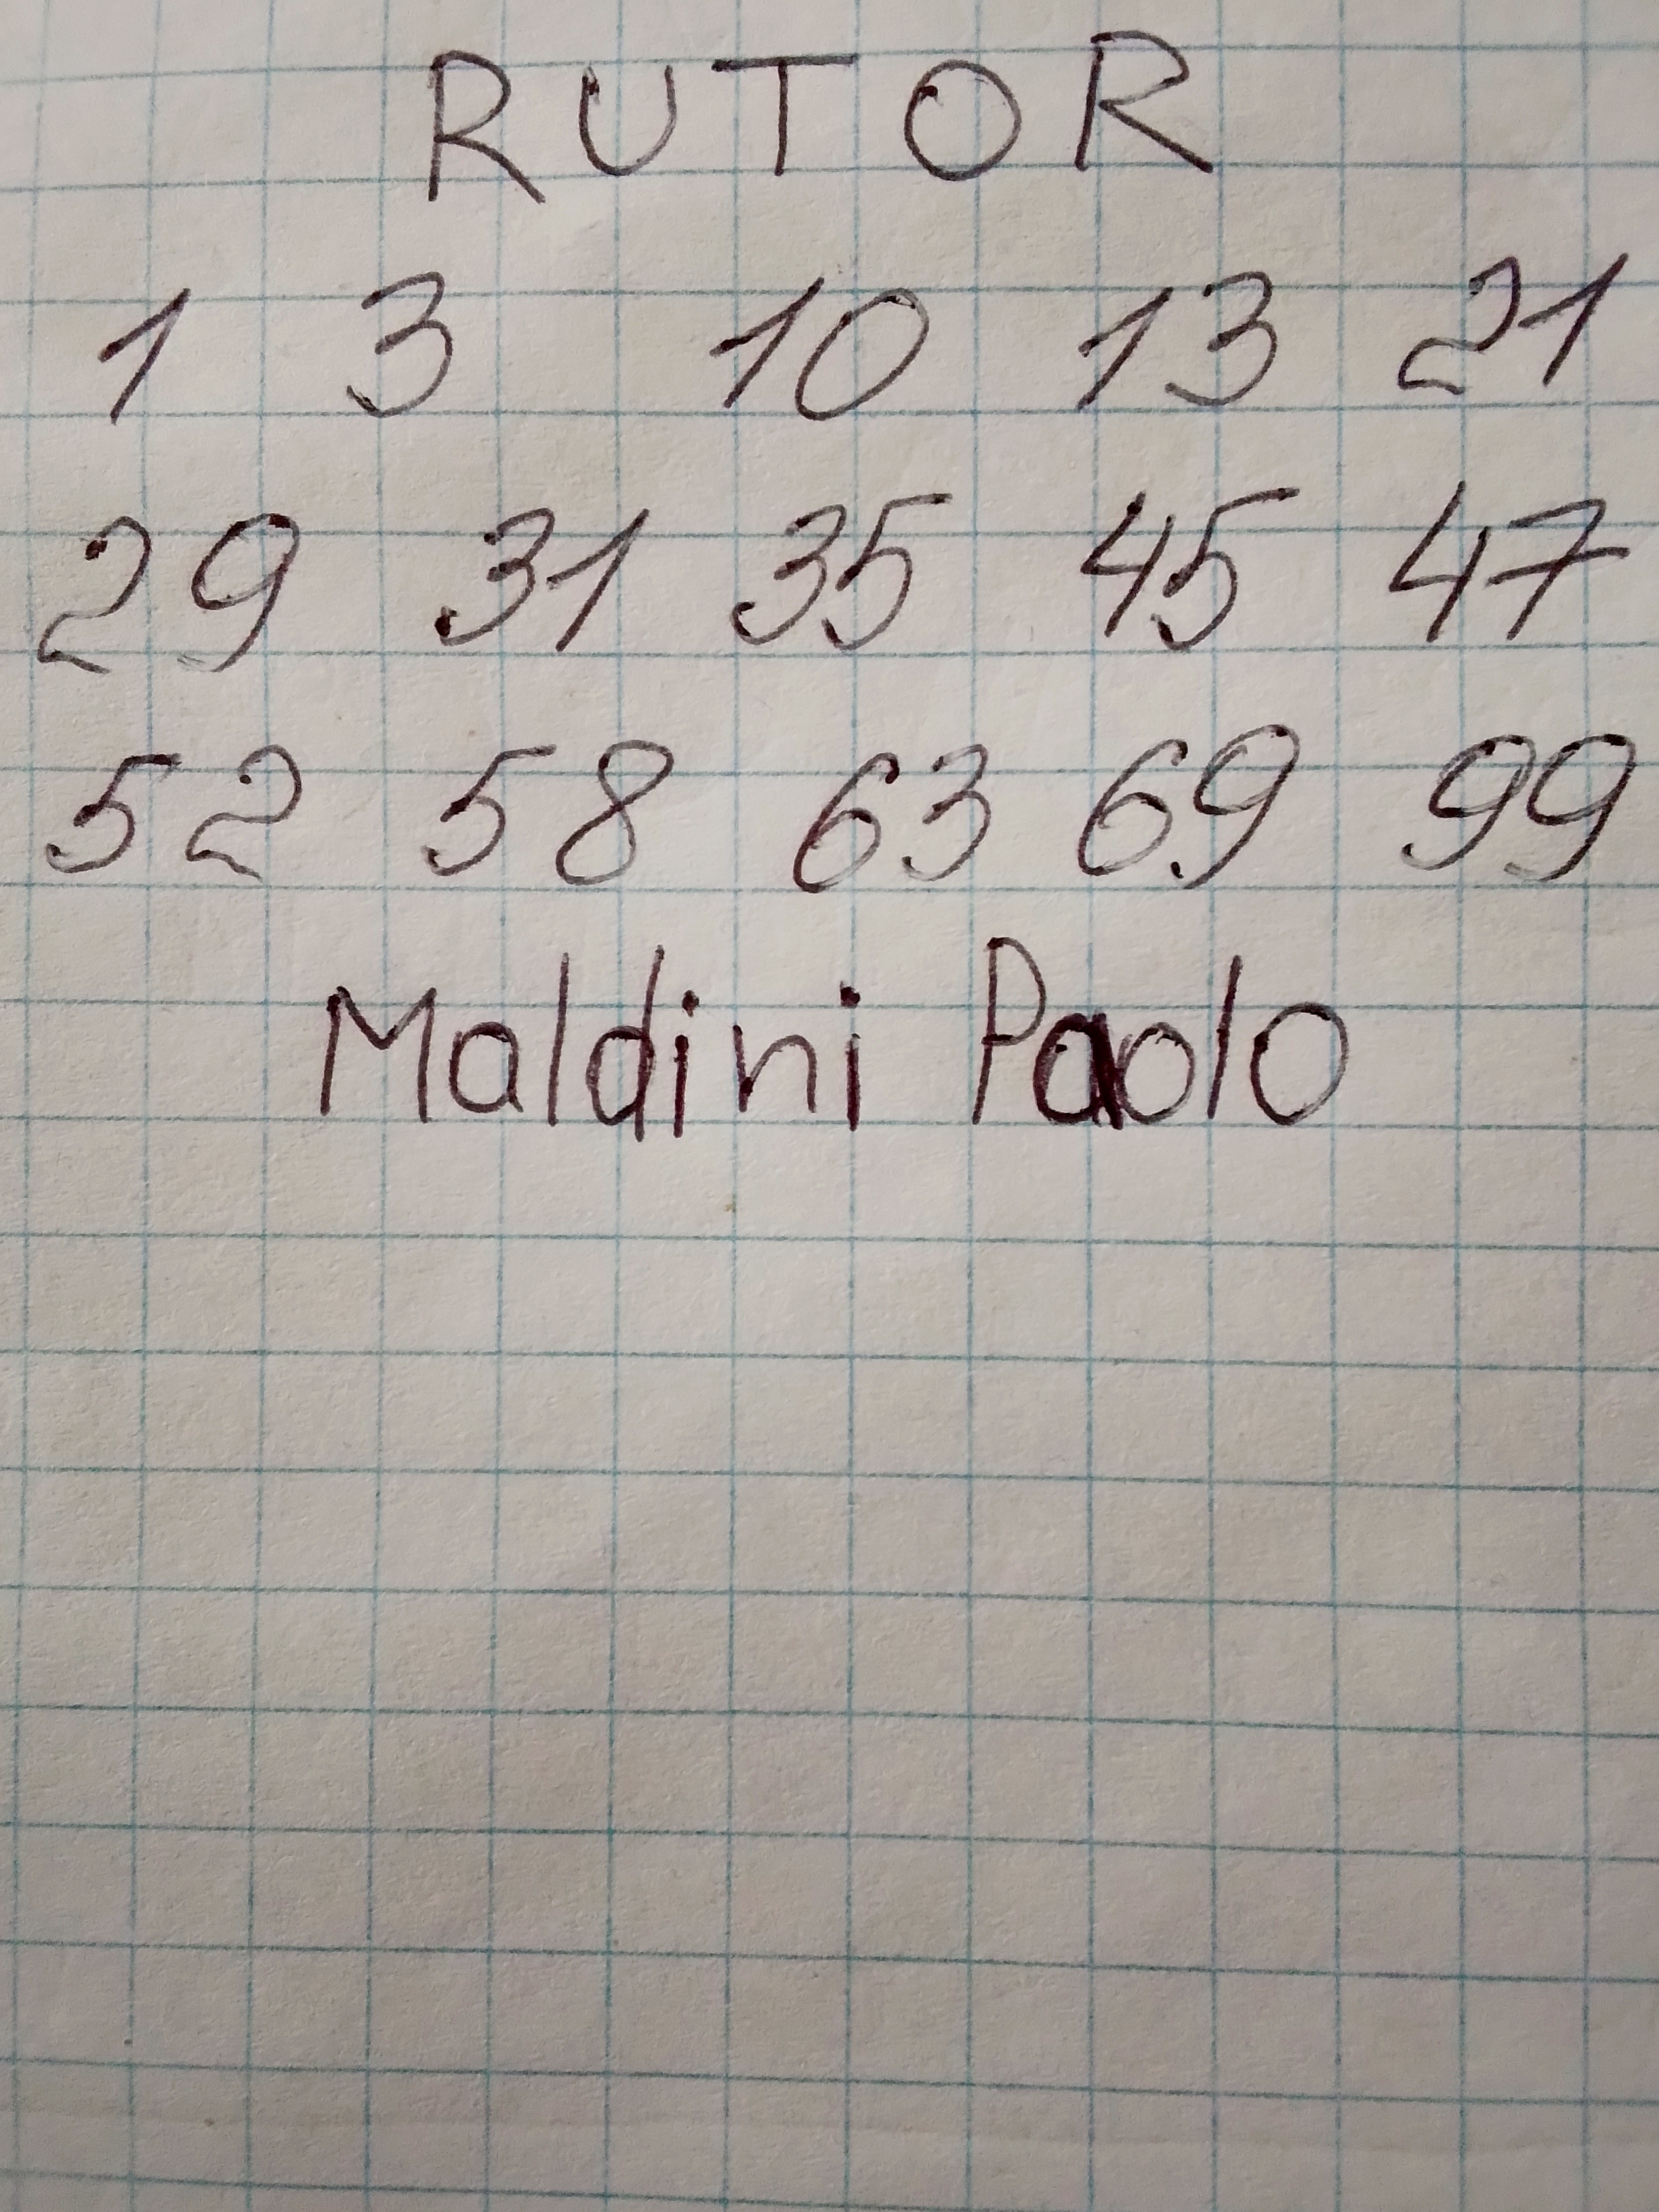 RUTOR
1 3 10 13 21
29 31 35 45 47
52 58 63 69 99
Maldini Paolo